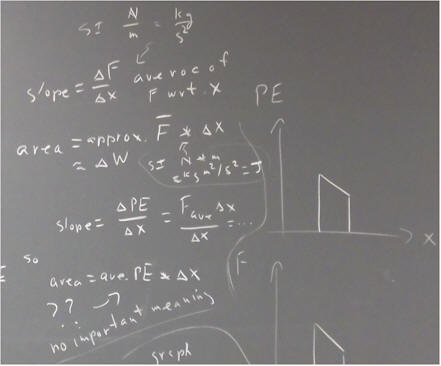 SI N/m = kg/s²
slope = ΔF/Δx ave roc of
F wrt. x
PE
area = approx. F̅ * Δx
≈ ΔW SI N*m
= kg m²/s² = J
slope = ΔPE/Δx = F ave Δx/Δx = ...
x
so
area = ave. PE * Δx
F
??
no important meaning
graph